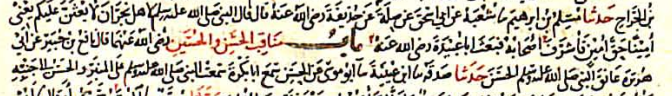 بن الجراح حدثنا مسلم بن ابرهيم نا شعبة عن ابي اسحق عن صلة عن حذيفة رضي الله عنه قال قال النبي صلى الله عليه وسلم لاهل نجران لابعثن عليكم يعني
امينا حق امين فاشرف اصحابه فبعث ابا عبيدة رضي الله عنه باب مناقب الحسن والحسين رضي الله عنهما قال نافع بن جبير عن ابي
هريرة عانق النبي صلى الله عليه وسلم الحسن حدثنا صدقة نا ابن عيينة نا ابو موسى عن الحسن سمع ابا بكرة سمعت النبي صلى الله عليه وسلم على المنبر والحسن الى جنبه